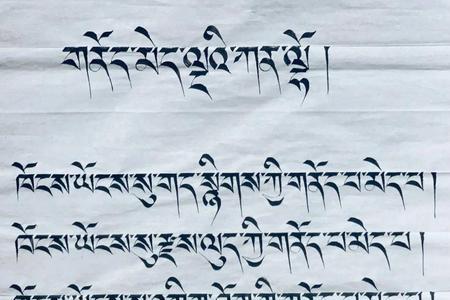 གནོད་མེད་ལྔའི་ཀན་ལྷོ། །
ཁོངས་ཡོངས་སུ་གད་སྙིགས་ཀྱི་གནོད་པ་མེད་པ།
ཁོངས་ཡོངས་སུ་རྫས་ལུད་ཀྱི་གནོད་པ་མེད་པ།